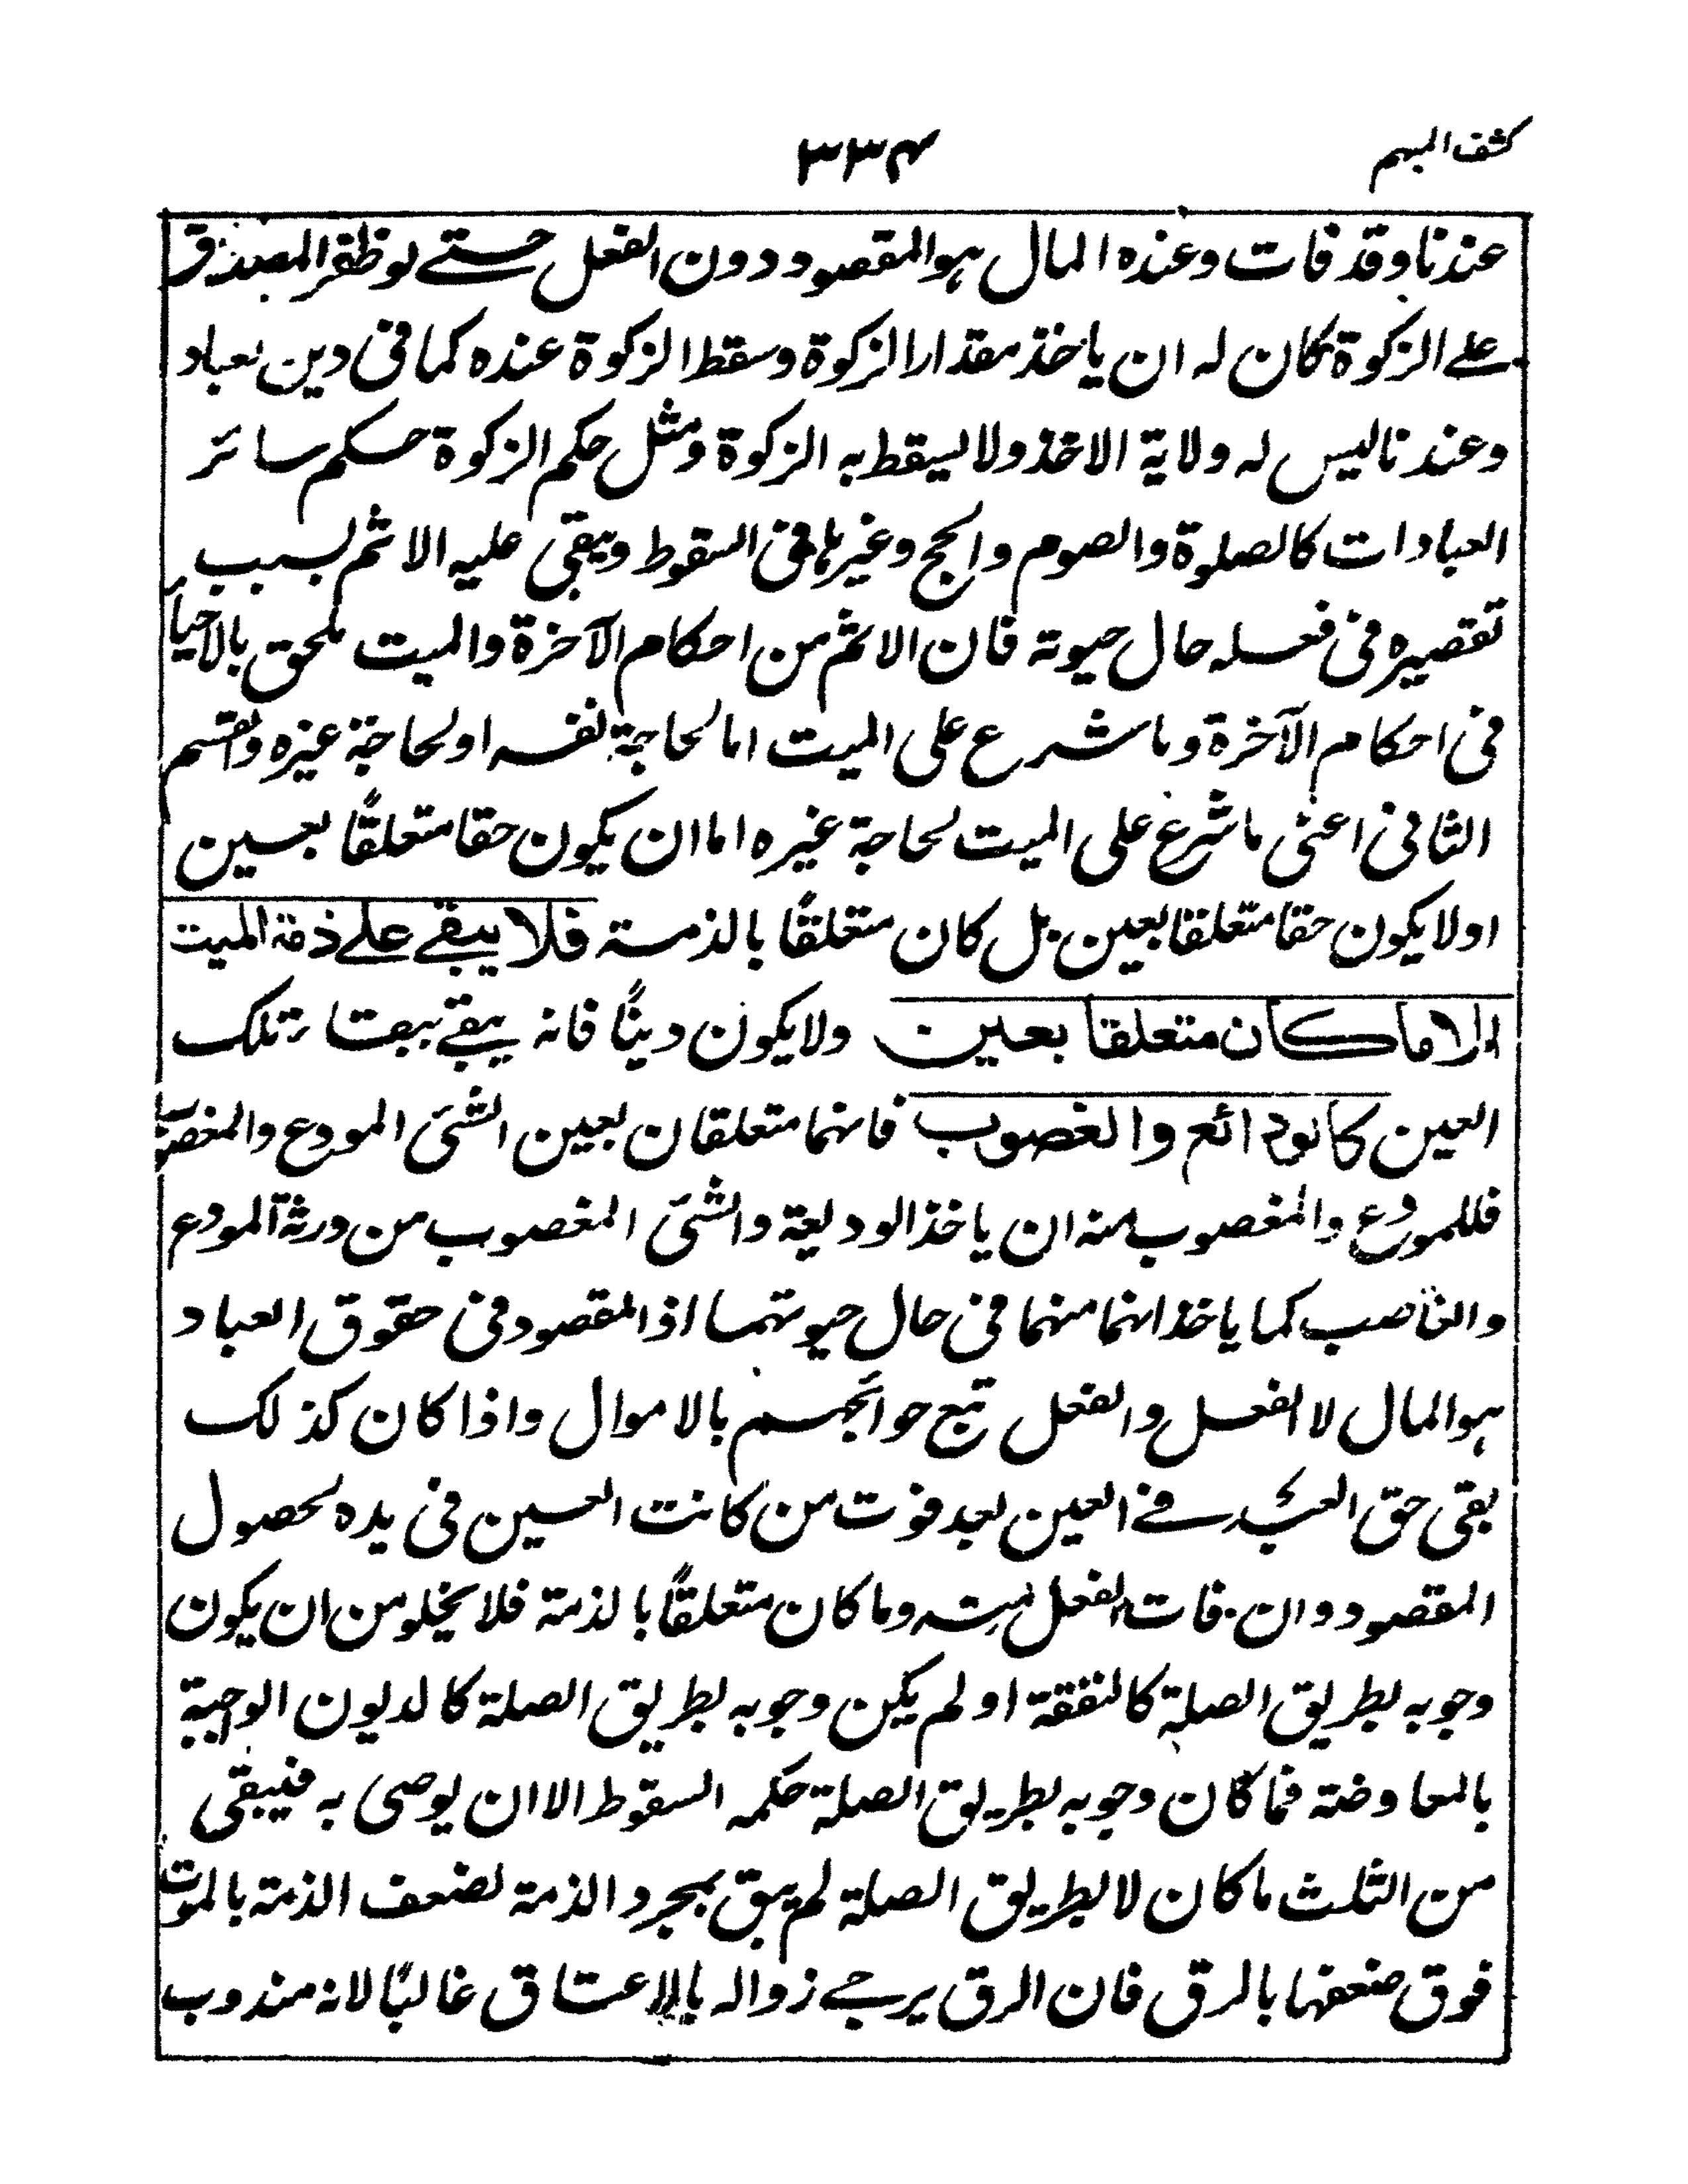 كشف المبهم
٣٣٤
عندنا وقد فات وعنده المال هو المقصود دون الفعل حتے لو ظفر المصدق
علے الزكوة كان له ان ياخذ مقدار الزكوة وسقط الزكوة عنده كما فی دين العباد
وعندنا ليس له ولاية الاخذ ولا يسقط به الزكوة ومثل حكم الزكوة حكم سائر
العبادات كالصلوة والصوم والحج وغيرها فی السقوط ويبقى عليه الاثم بسبب
تقصيره فی فعله حال حيوته فان الاثم من احكام الآخرة والميت ملحق بالاحياء
فی احكام الآخرة وما شرع على الميت اما لحاجة نفسه او لحاجة غيره والقسم
الثانی اعنی ما شرع على الميت لحاجة غيره اما ان يكون حقا متعلقًا بعين
او لا يكون حقا متعلقا بعين بل كان متعلقًا بالذمة فلا يبقے علے ذمة الميت
إلا ما كان متعلقا بعين ولا يكون دينًا فانه يبقے ببقاء تلك
العين كالودائع والغصوب فانهما متعلقان بعين الشئ المودع والمغصوب
فللمودع والمغصوب منه ان ياخذ الوديعة والشئ المغصوب من ورثة المودع
والغاصب كما ياخذانهما منهما فی حال حيوتهما اذ المقصود فی حقوق العباد
هو المال لا الفعل والفعل تبع حوائجهم بالاموال واذا كان كذلك
بقی حق العبد فے العين بعد فوت من كانت العين فی يده لحصول
المقصود وان فات الفعل منه وما كان متعلقًا بالذمة فلا يخلو من ان يكون
وجوبه بطريق الصلة كالنفقة او لم يكن وجوبه بطريق الصلة كالديون الواجبة
بالمعاوضة فما كان وجوبه بطريق الصلة حكمه السقوط الا ان يوصی به فيبقی
من الثلث ما كان لا بطريق الصلة لم يبق بمجرد الذمة لضعف الذمة بالموت
فوق ضعفها بالرق فان الرق يرجے زواله بالاعتاق غالبًا لانه مندوب